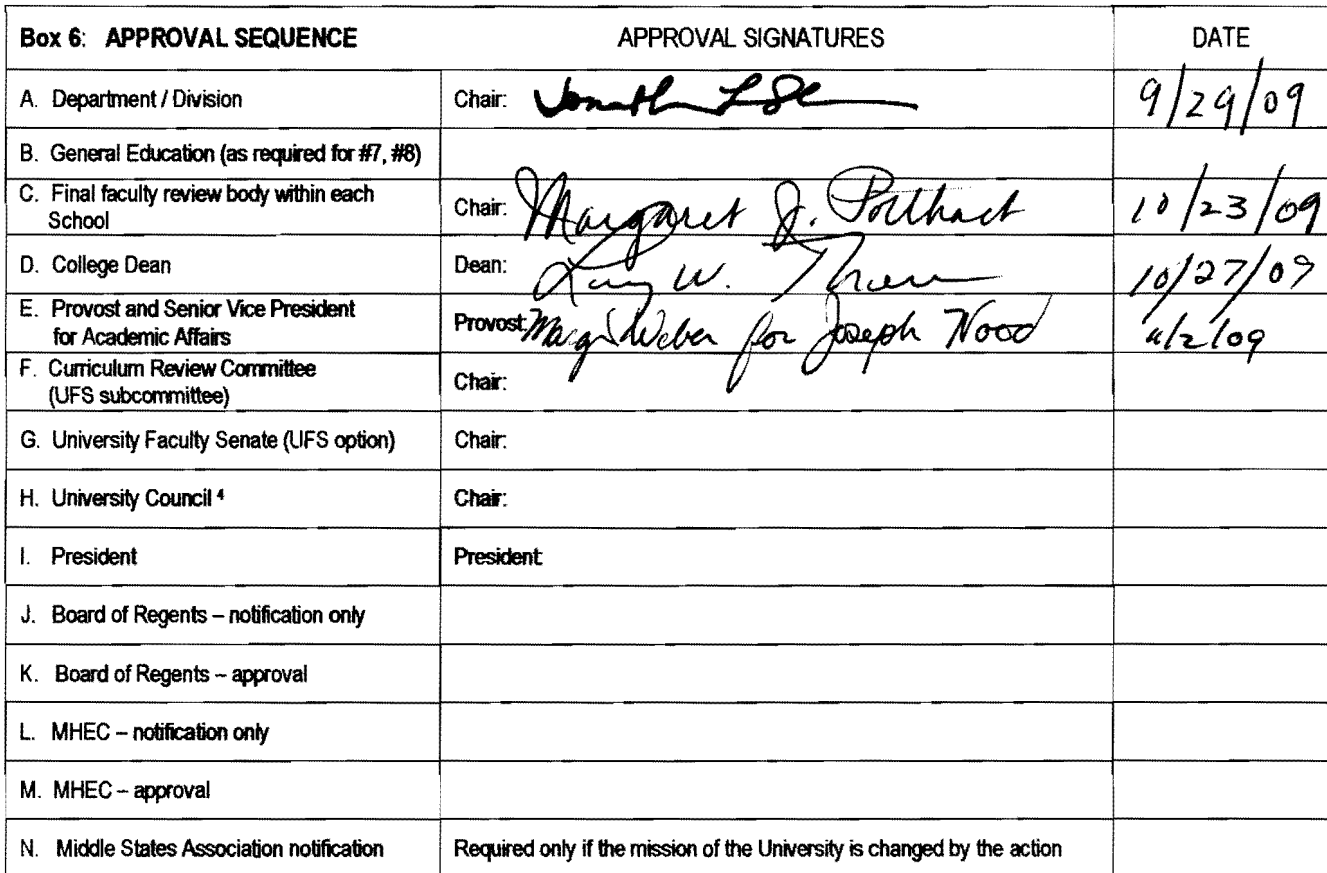 Box 6: APPROVAL SEQUENCE APPROVAL SIGNATURES DATE
A. Department / Division Chair: 9/29/09
B. General Education (as required for #7, #8)
C. Final faculty review body within each
School Chair: Margaret J. 10/23/09
D. College Dean Dean: W. 10/27/09
E. Provost and Senior Vice President
for Academic Affairs Provost: Weber for Joseph Wood 11/2/09
F. Curriculum Review Committee
(UFS subcommittee) Chair:
G. University Faculty Senate (UFS option) Chair:
H. University Council 4 Chair:
I. President President:
J. Board of Regents – notification only
K. Board of Regents – approval
L. MHEC – notification only
M. MHEC – approval
N. Middle States Association notification Required only if the mission of the University is changed by the action